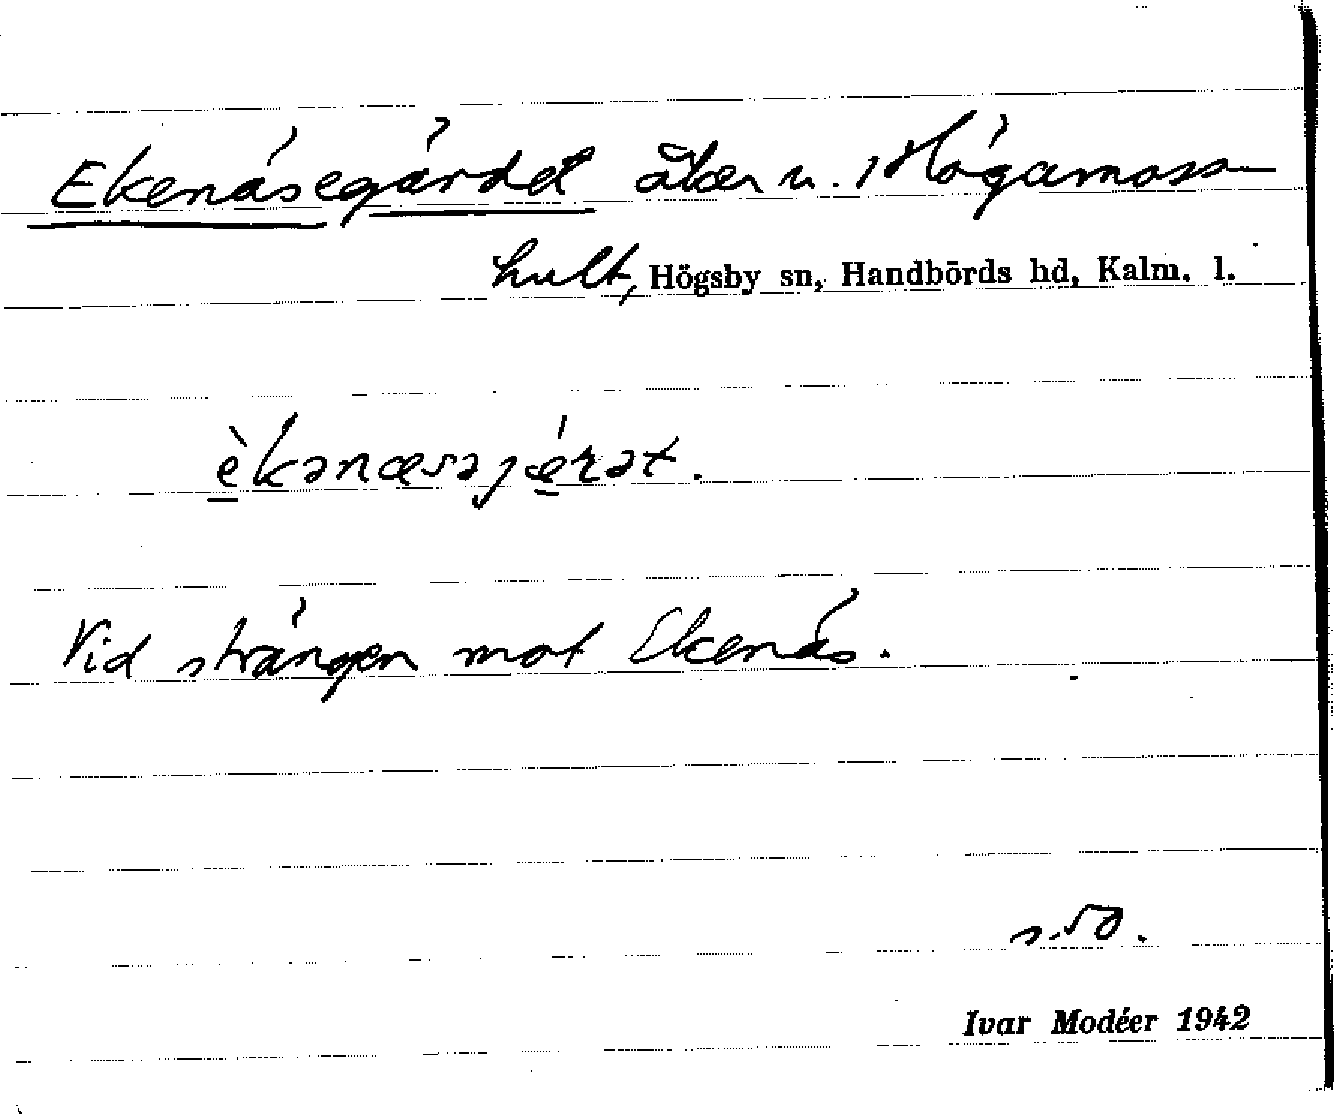 Ekenäsegärdet åker u. Högamosse-
hult, Högsby sn, Handbörds hd, Kalm. l.
èkənæsəjǽrət.
Vid strängen mot Ekenäs.
s. 50.
Ivar Modéer 1942